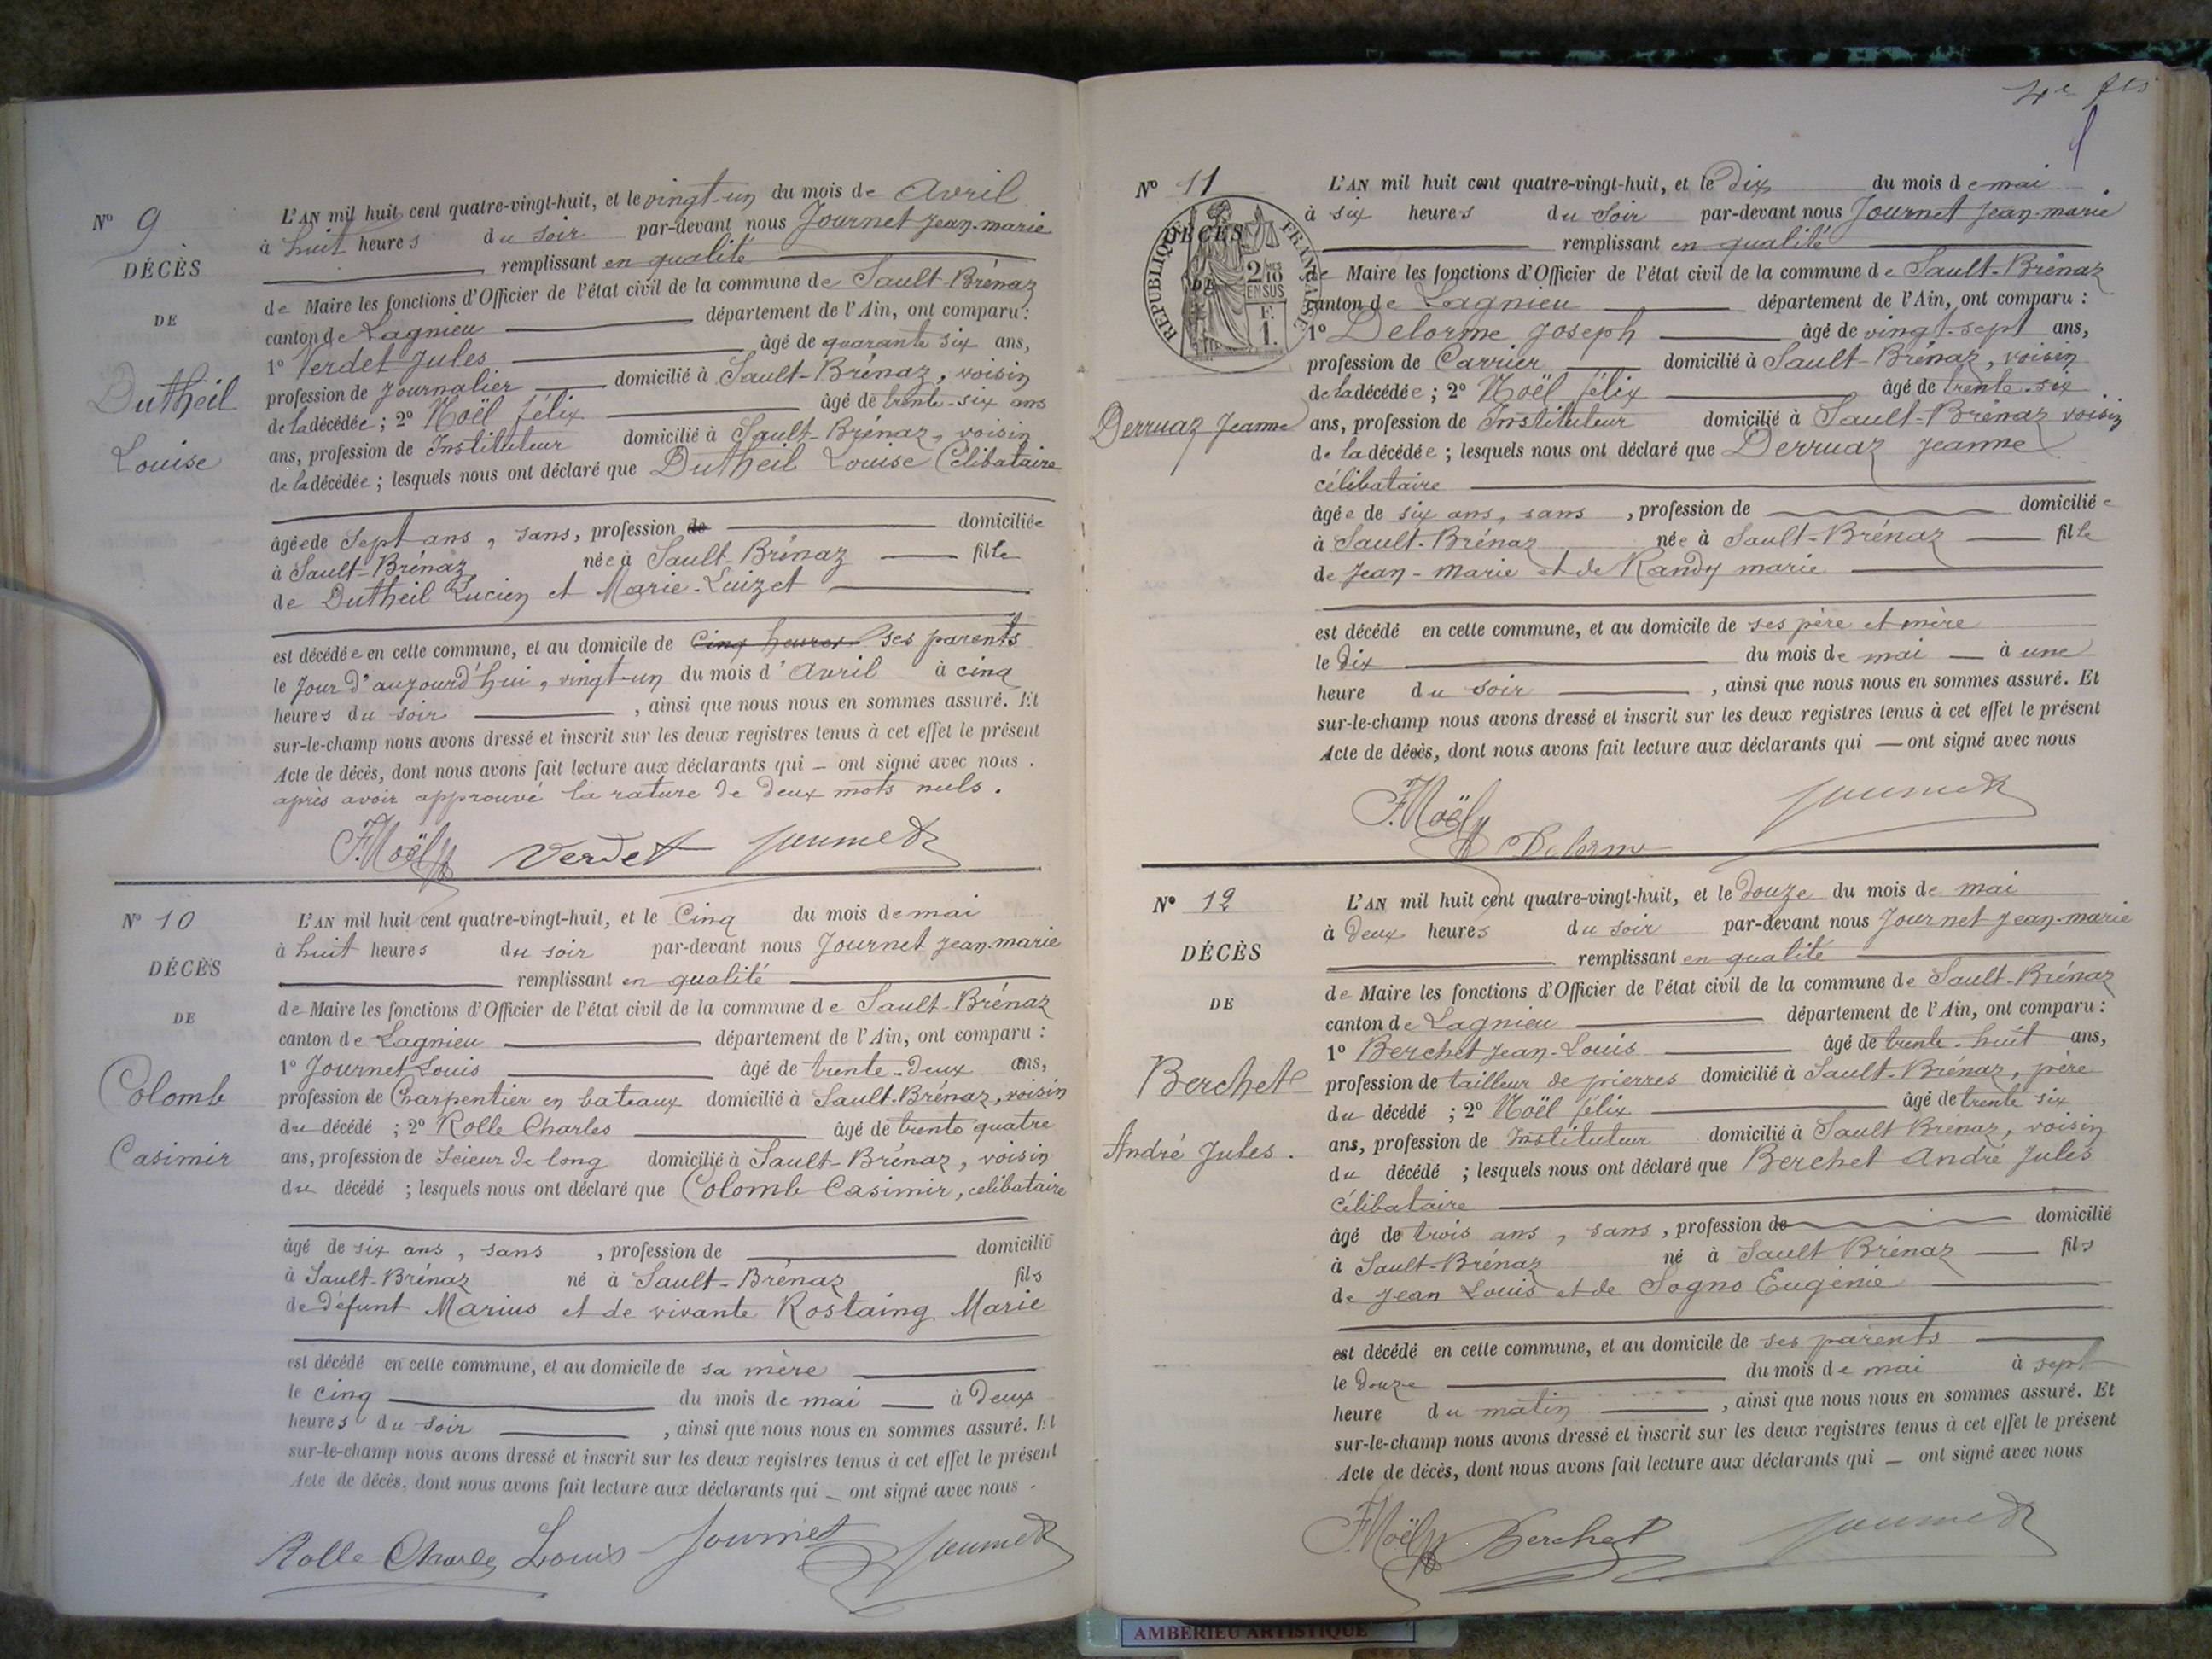 Nº 9
DÉCÈS
DE
Dutheil
Louise
L'AN mil huit cent quatre-vingt-huit, et le vingt-un du mois de Avril
à huit heures du soir par-devant nous Journet Jean-marie
remplissant en qualité
de Maire les fonctions d'Officier de l'état civil de la commune de Sault-Brénaz
canton de Lagnieu département de l'Ain, ont comparu :
1º Verdet Jules âgé de quarante six ans,
profession de Journalier domicilié à Sault-Brénaz, voisin
de la décédée ; 2º Noël félix âgé de trente-six ans
ans, profession de Instituteur domicilié à Sault-Brénaz, voisin
de la décédée ; lesquels nous ont déclaré que Dutheil Louise Célibataire
âgée de Sept ans, sans, profession de domiciliée
à Sault-Brénaz née à Sault-Brénaz fille
de Dutheil Lucien et Marie-Luizet
est décédée en cette commune, et au domicile de Cinq heures ses parents
le Jour d'aujourd'hui, vingt-un du mois d'Avril à cinq
heures du soir , ainsi que nous nous en sommes assuré. Et
sur-le-champ nous avons dressé et inscrit sur les deux registres tenus à cet effet le présent
Acte de décès, dont nous avons fait lecture aux déclarants qui ont signé avec nous.
après avoir approuvé la rature de deux mots nuls.
F. Noël Verdet Journet
Nº 10
DÉCÈS
DE
Colomb
Casimir
L'AN mil huit cent quatre-vingt-huit, et le Cinq du mois de mai
à huit heures du soir par-devant nous Journet Jean-marie
remplissant en qualité
de Maire les fonctions d'Officier de l'état civil de la commune de Sault-Brénaz
canton de Lagnieu département de l'Ain, ont comparu :
1º Journet Louis âgé de trente-deux ans,
profession de Charpentier en bateaux domicilié à Sault-Brénaz, voisin
du décédé ; 2º Rolle Charles âgé de trente quatre
ans, profession de Scieur de long domicilié à Sault-Brénaz, voisin
du décédé ; lesquels nous ont déclaré que Colomb Casimir, célibataire
âgé de six ans, sans , profession de domicilié
à Sault-Brénaz né à Sault-Brénaz fils
de défunt Marius et de vivante Rostaing Marie
est décédé en cette commune, et au domicile de sa mère
le cinq du mois de mai à Deux
heures du soir , ainsi que nous nous en sommes assuré. Et
sur-le-champ nous avons dressé et inscrit sur les deux registres tenus à cet effet le présent
Acte de décès, dont nous avons fait lecture aux déclarants qui ont signé avec nous.
Rolle Charles Louis Journet Journet
Nº 11
DÉCÈS
DE
RÉPUBLIQUE FRANÇAISE
2/10 EN SUS
F. 1.
Derruaz Jeanne
L'AN mil huit cent quatre-vingt-huit, et le Dix du mois de mai
à six heures du Soir par-devant nous Journet Jean-marie
remplissant en qualité
de Maire les fonctions d'Officier de l'état civil de la commune de Sault-Brénaz
canton de Lagnieu département de l'Ain, ont comparu :
1º Delorme Joseph âgé de vingt-sept ans,
profession de Carrier domicilié à Sault-Brénaz, voisin
de la décédée ; 2º Noël félix âgé de trente-six
ans, profession de Instituteur domicilié à Sault-Brénaz voisin
de la décédée ; lesquels nous ont déclaré que Derruaz Jeanne
célibataire
âgée de six ans, sans , profession de domiciliée
à Sault-Brénaz née à Sault-Brénaz fille
de Jean-Marie et de Randy marie
est décédé en cette commune, et au domicile de ses père et mère
le Dix du mois de mai à une
heure du soir , ainsi que nous nous en sommes assuré. Et
sur-le-champ nous avons dressé et inscrit sur les deux registres tenus à cet effet le présent
Acte de décès, dont nous avons fait lecture aux déclarants qui ont signé avec nous
F. Noël Delorme Journet
Nº 12
DÉCÈS
DE
Berchet
André Jules.
L'AN mil huit cent quatre-vingt-huit, et le Douze du mois de mai
à Deux heures du soir par-devant nous Journet Jean-marie
remplissant en qualité
de Maire les fonctions d'Officier de l'état civil de la commune de Sault-Brénaz
canton de Lagnieu département de l'Ain, ont comparu :
1º Berchet Jean-Louis âgé de trente-huit ans,
profession de tailleur de pierres domicilié à Sault-Brénaz, père
du décédé ; 2º Noël félix âgé de trente six
ans, profession de Instituteur domicilié à Sault Brénaz, voisin
du décédé ; lesquels nous ont déclaré que Berchet André Jules
Célibataire
âgé de trois ans, sans, profession de domicilié
à Sault-Brénaz né à Sault Brénaz fils
de Jean Louis et de Sogno Eugénie
est décédé en cette commune, et au domicile de ses parents
le Douze du mois de mai à sept
heure du matin , ainsi que nous nous en sommes assuré. Et
sur-le-champ nous avons dressé et inscrit sur les deux registres tenus à cet effet le présent
Acte de décès, dont nous avons fait lecture aux déclarants qui ont signé avec nous
F. Noël Berchet Journet
AMBERIEU ARTISTIQUE